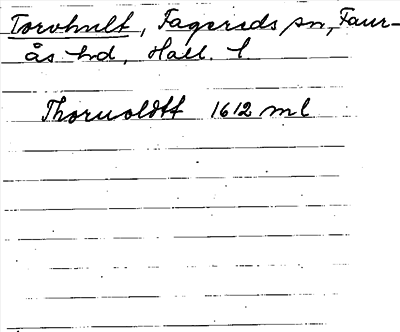 Torvhult, Fagereds sn, Faur-
ås hd, Hall. l.
Thoruoldtt 1612 ml